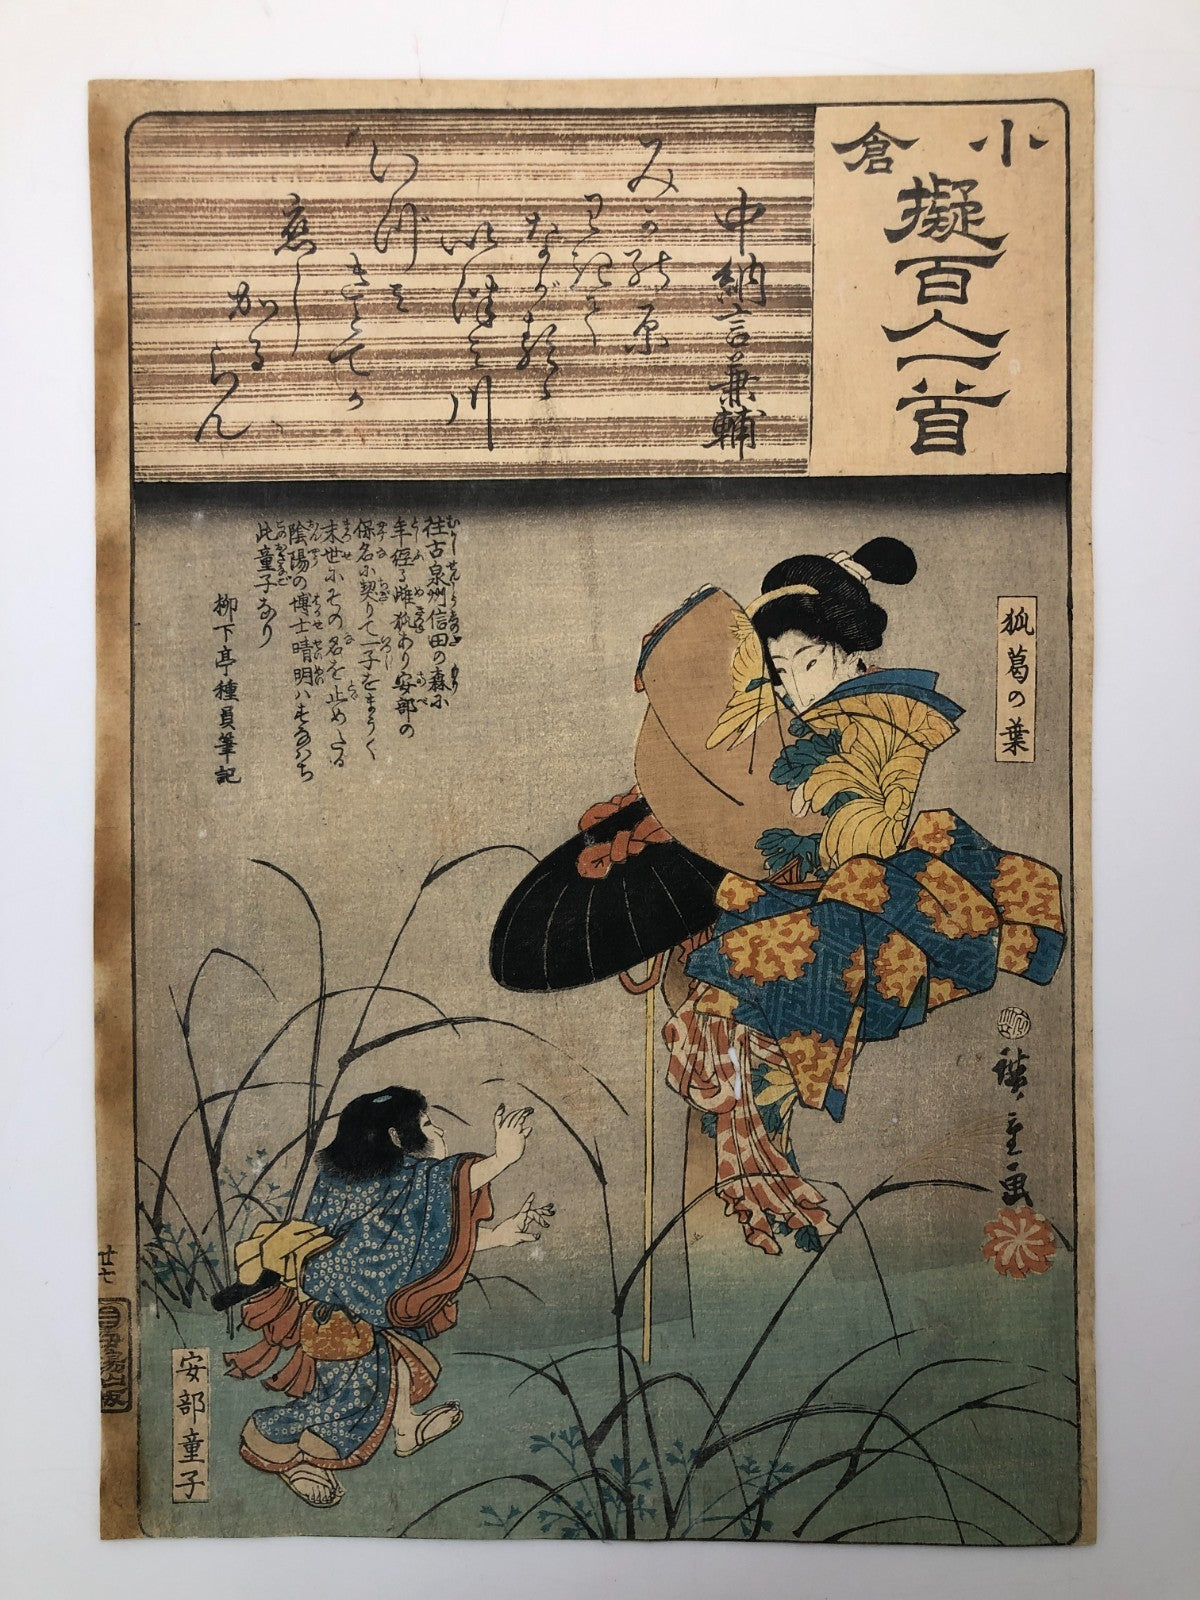 小倉
擬百人一首
中納言兼輔
みかの原
わきて
ながるゝ
いつみ川
いつみ
きとてか
恋し
かる
らん
狐葛の葉
往古泉州信田の森に
年経る雌狐あり安部の
保名に契りて一子をまうく
末世にその名を止めたる
陰陽の博士晴明ハすなはち
此童子なり
柳下亭種員筆記
廣重画
安部童子
廿七
伊場仙板